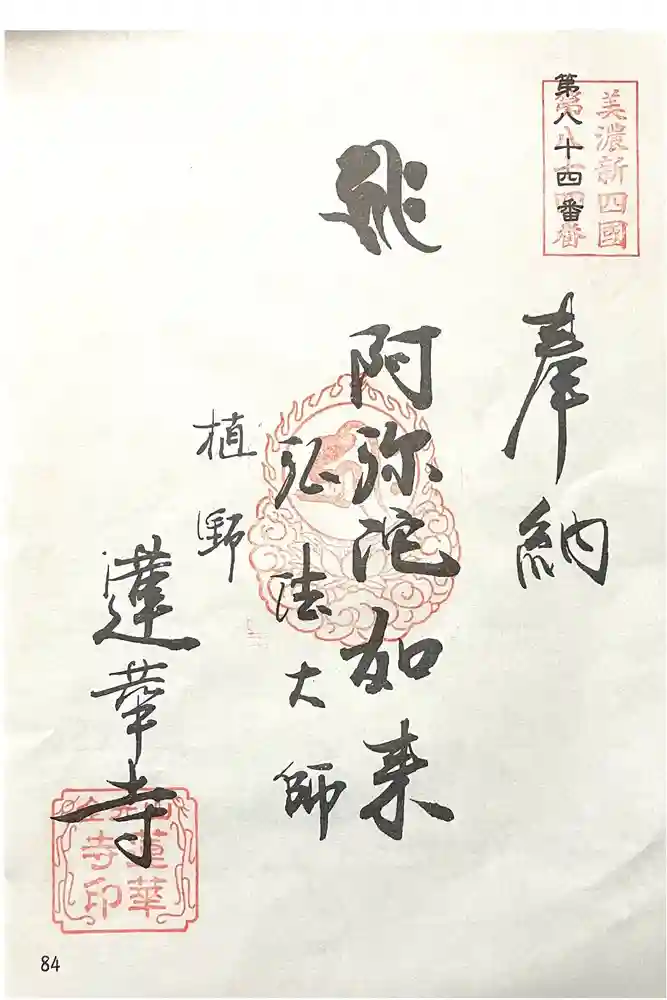 美濃新四國
第八十四番
第八十四番
奉納
阿弥陀如来
弘法大師
植野
蓮華寺
蓮華
寺印
84